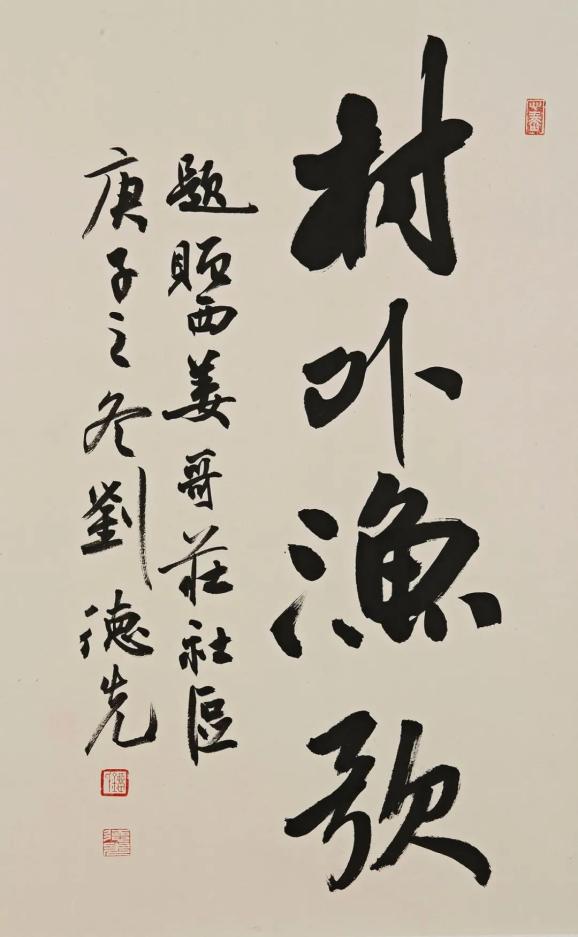 村外漁歌
題西姜哥莊社區
庚子之冬劉德先